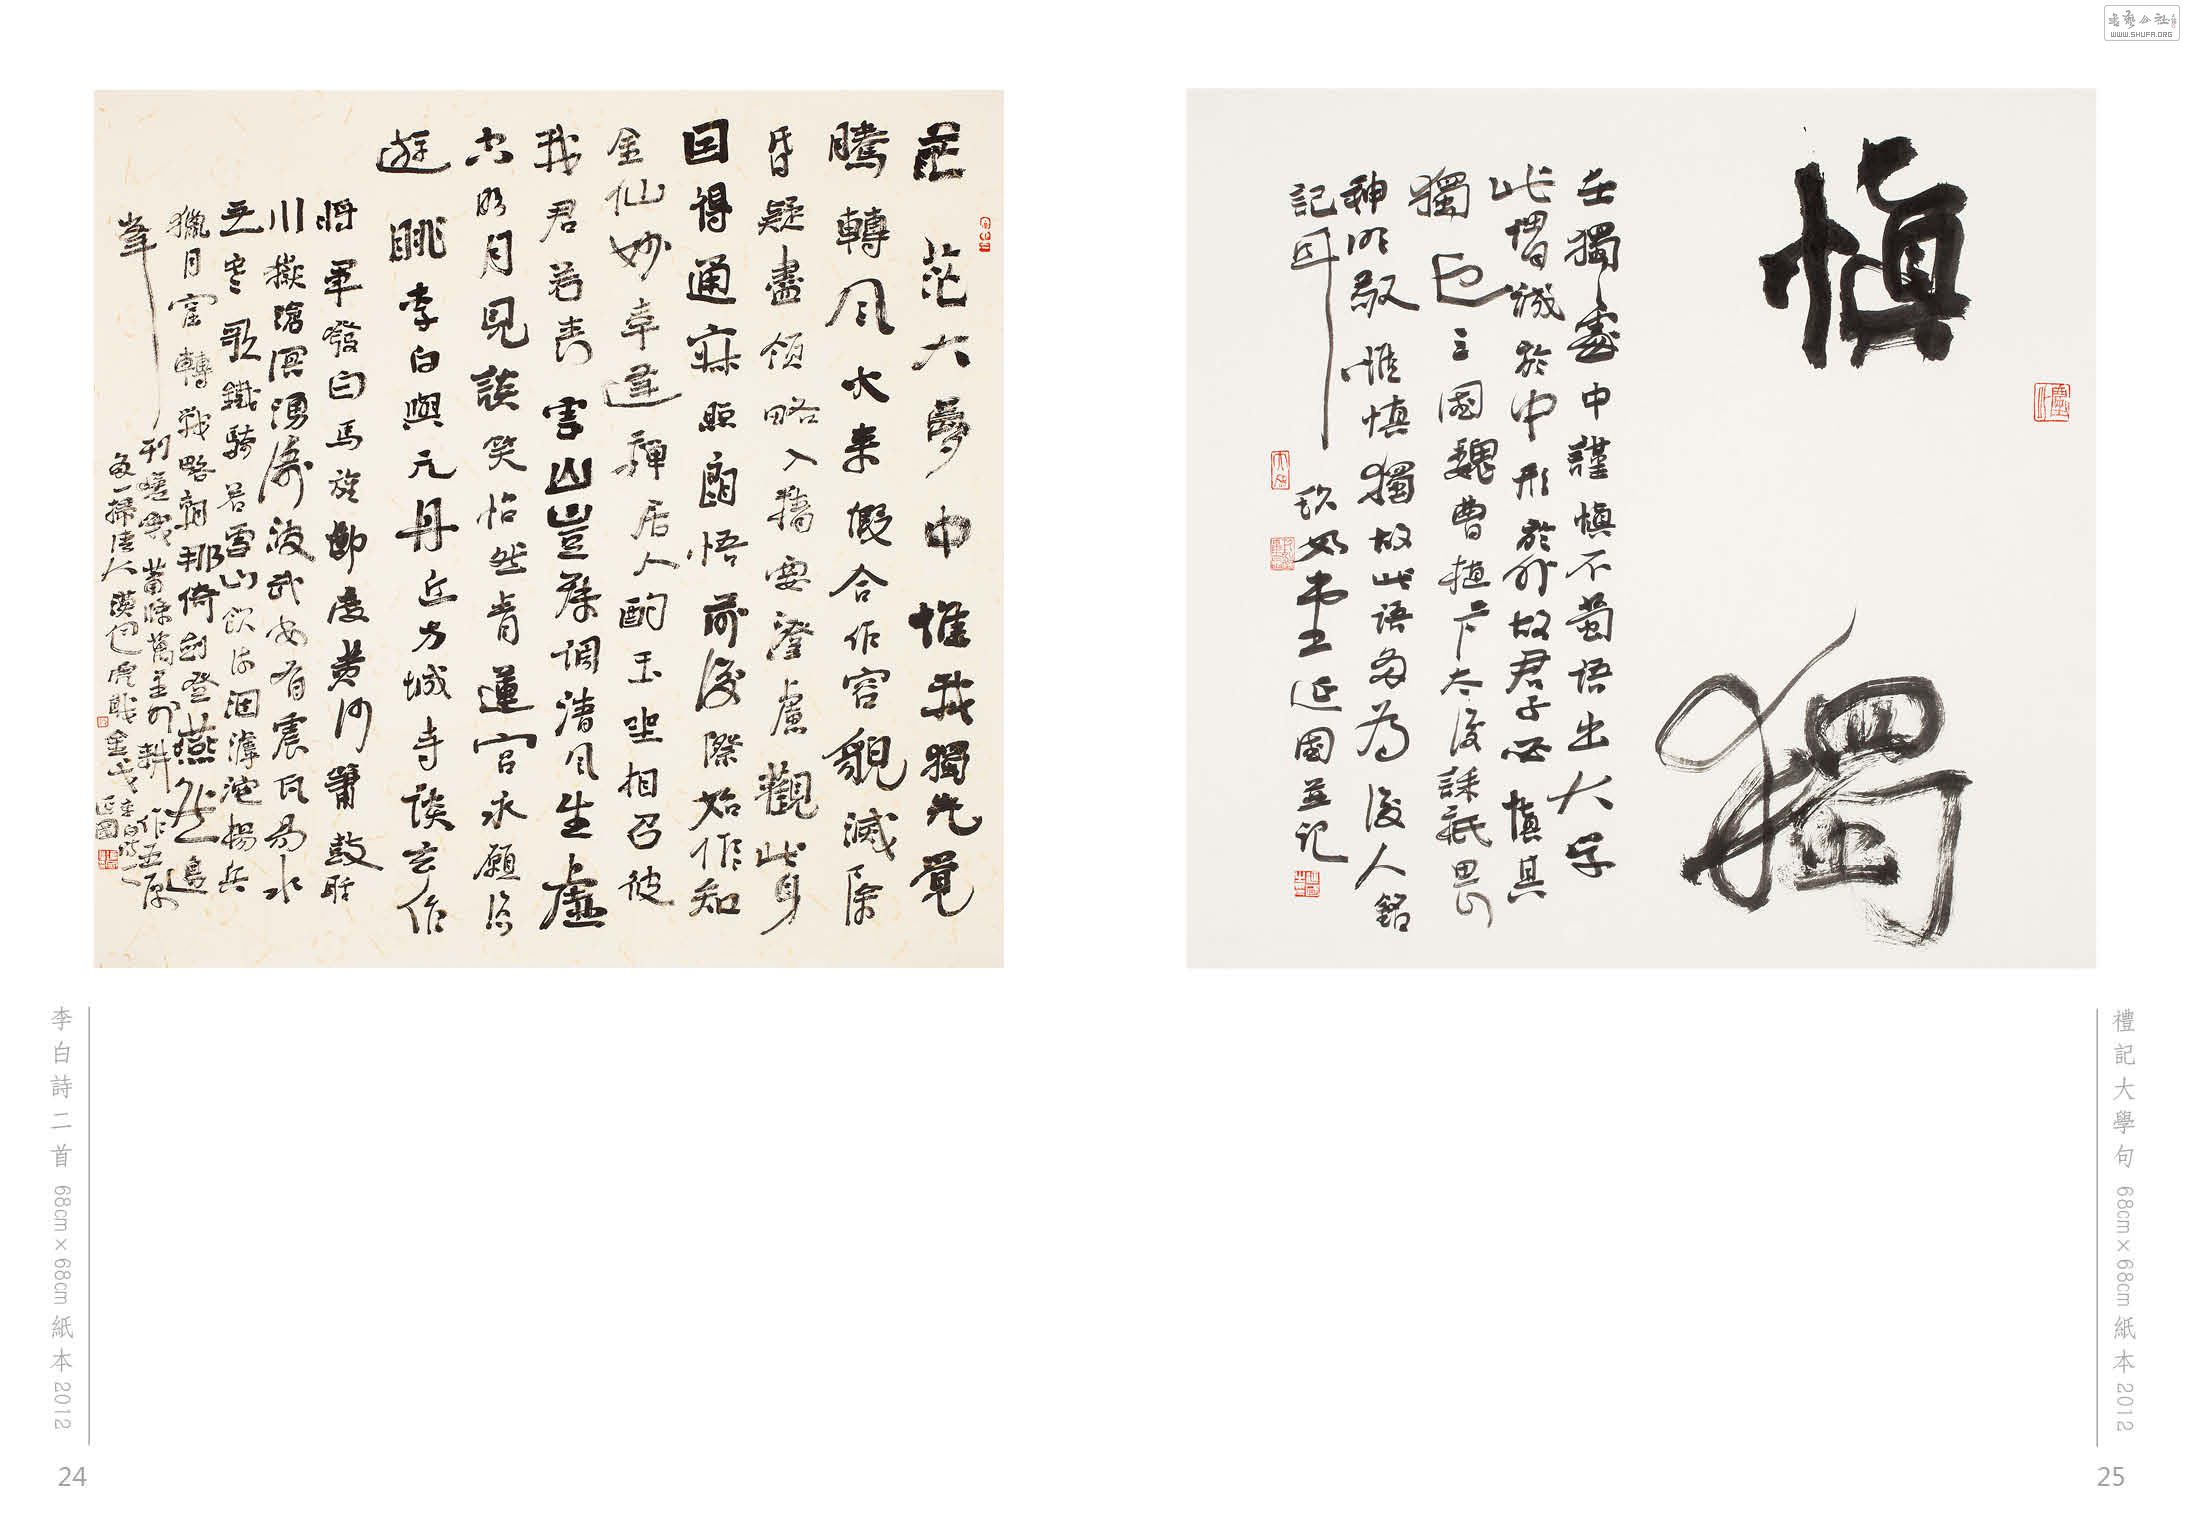 茫茫大夢中惟我獨先覺
騰轉風火來假合作容貌滅除
昏疑盡領略入精要澄慮觀此身
因得通寂照朗悟前後際始作知
金仙妙幸逢禪居人酌玉坐相召彼
我君若喪言山豈群調清風生虛
空明月見談笑怡然青蓮宮永願恣
遊眺 李白與元丹丘方城寺談玄作
將軍發白馬旌節度黃河簫鼓聒
川嶽滄溟湧濤波武安有震瓦易水
無寒歌鐵騎若雪山飲流涸滹沱揚兵
獵月窟轉戰略朝那倚劍登燕然邊
峯列嵯峨蕭條萬里外耕作五原
多一掃清大漠包虎戢金戈 延國
李白詩二首 68cm×68cm 紙本 2012
24
慎獨
在獨處中謹慎不茍語出大學
此謂誠於中形於外故君子必慎其
獨也三國魏曹植卞太后誄祗畏
神明敬惟慎獨故此語多為後人銘
記耳 王延國並記
禮記大學句 68cm×68cm 紙本 2012
25
書藝公社
WWW.SHUFA.ORG